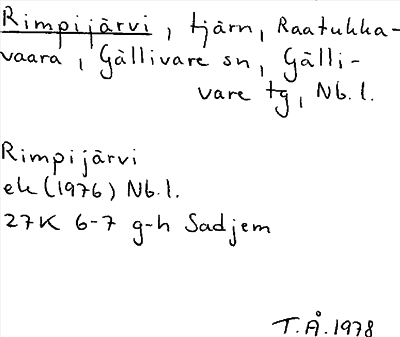 Rimpijärvi, tjärn, Raatukka-
vaara, Gällivare sn, Gälli-
vare tg, Nb. l.
Rimpijärvi
ek (1976) Nb. l.
27K 6-7 g-h Sadjem
T.Å. 1978